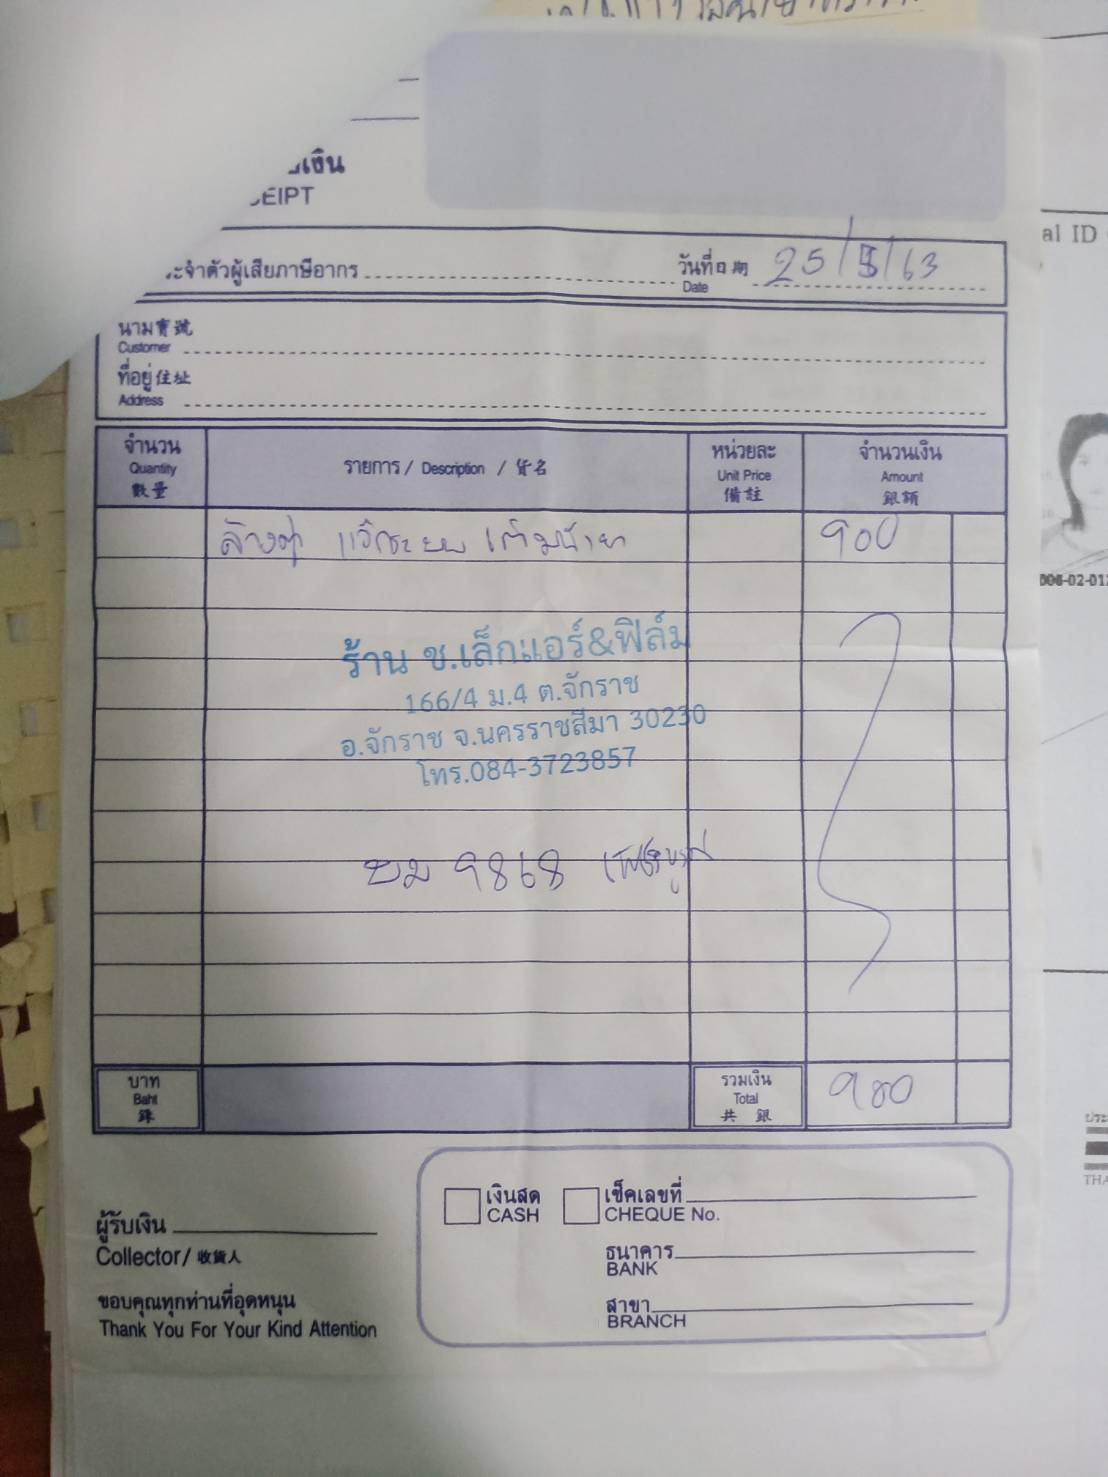 เงิน
EIPT
ะจำตัวผู้เสียภาษีอากร
วันที่ 日期 25/5/63
Date
al ID
นาม寶號
Customer
ที่อยู่住址
Address
จำนวน
Quantity
數量
รายการ / Description / 貨名
หน่วยละ
Unit Price
備註
จำนวนเงิน
Amount
銀額
ล้างตู้ แว๊กระบบ เติมน้ำยา 900
ร้าน ช.เล็กแอร์&ฟิล์ม
166/4 ม.4 ต.จักราช
อ.จักราช จ.นครราชสีมา 30230
โทร.084-3723857
ขม 9868
บาท
Baht
銖
รวมเงิน
Total
共 銀
900
เงินสด
CASH
เช็คเลขที่
CHEQUE No.
ธนาคาร
BANK
สาขา
BRANCH
ผู้รับเงิน
Collector/ 收貨人
ขอบคุณทุกท่านที่อุดหนุน
Thank You For Your Kind Attention